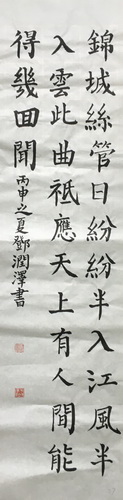 錦城絲管日紛紛半入江風半
入雲此曲祇應天上有人間能
得幾回聞
丙申之夏鄧潤澤書